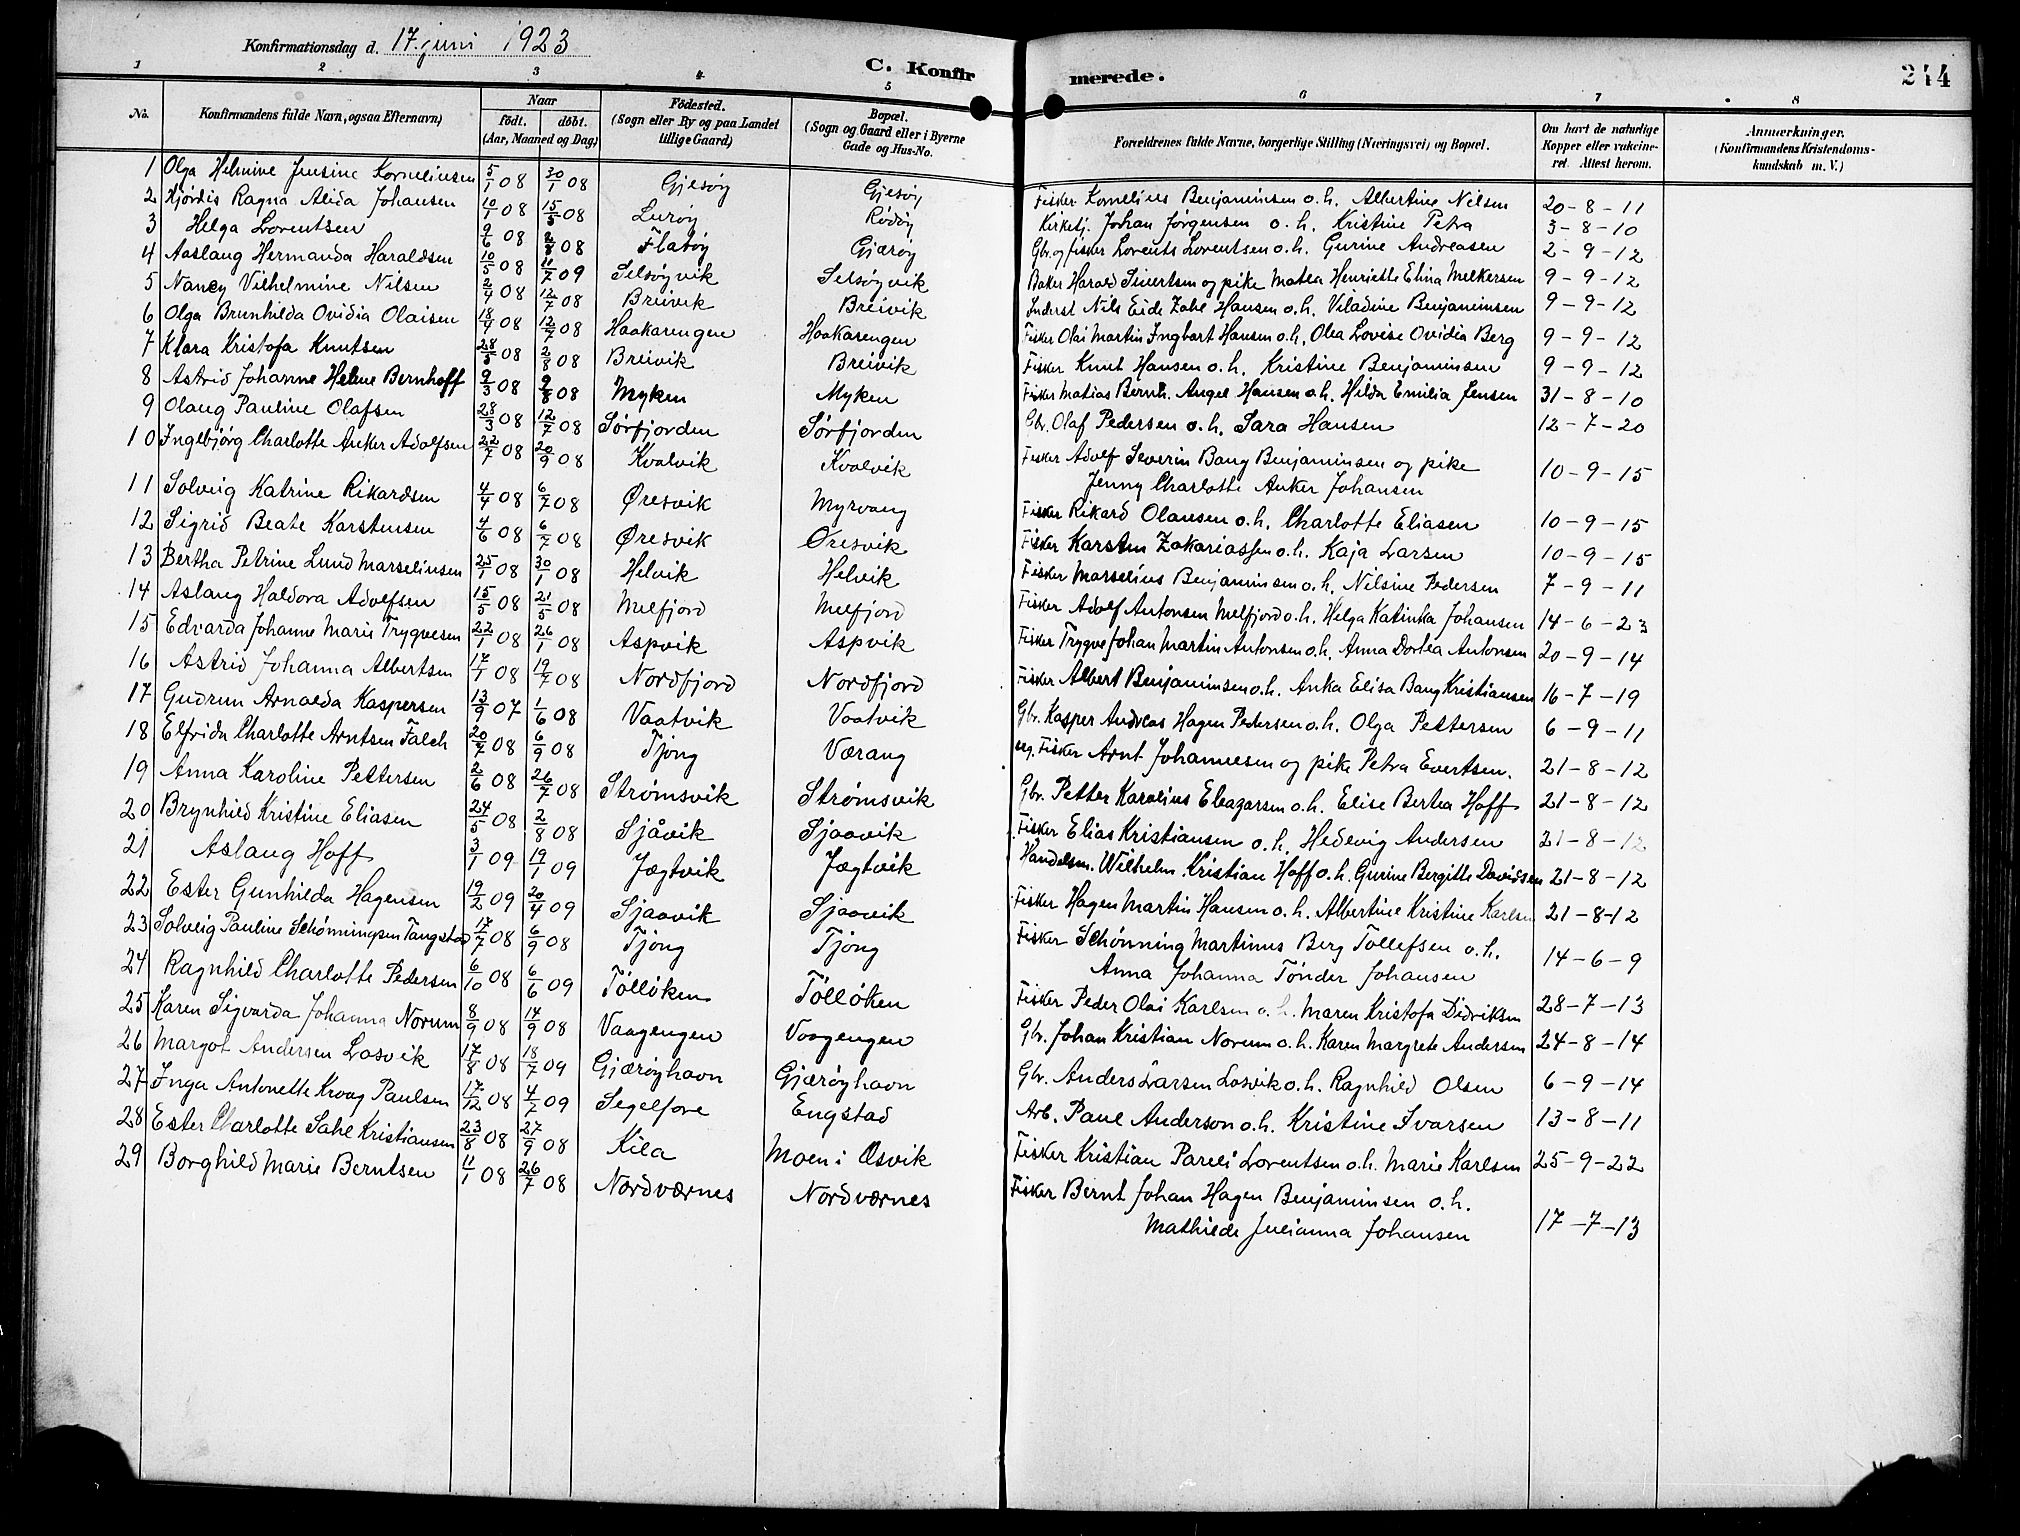 Konfirmationsdag d. 17. juni 1923
C. Konfirmerede.
244
1 2 3 4 5 6 7 8
No. Konfirmandens fulde Navn, ogsaa Efternavn) Naar født. døbt. (Aar, Maaned og Dag) Födested. (Sogn eller By og paa Landet tillige Gaard) Bopæl. (Sogn og Gaard eller i Byerne Gade og Hus-No. Forældrenes fulde Navne, borgerlige Stilling (Næringsvei) og Bopæl. Om havt de naturlige Kopper eller vakcineret. Attest herom. Anmærkninger. (Konfirmandens Kristendomskundskab m. V.)
1 Olga Helmine Jensine Korneliussen 5/1 08 30/1 08 Gjesøy Gjesøy Fisker Kornelius Benjaminsen o.h. Albertine Nilsen 20-8-11
2 Hjördis Ragna Alida Johansen 10/1 08 15/3 08 Lurøy Rödöy Kirketj. Johan Jørgensen o.h. Kristine Petra 3-8-10
3 Helga Lorentsen 9/6 08 2/8 08 Flatöy Gjæröy Gbr. og fisker Lorents Lorentsen o.h. Gurine Andreasen 2-9-12
4 Aaslaug Hermanda Haraldsen 10/5 08 11/7 09 Selsøyvik Selsøyvik Baker Harald Sivertsen og pike Matea Henriette Elina Melkersen 9-9-12
5 Nancy Vilhelmine Nilsen 2/4 08 12/7 08 Breivik Breivik Inderst Nils Eide Zahl Hansen o.h. Viladine Benjaminsen 9-9-12
6 Olga Brunhilda Ovidia Olaisen 18/4 08 12/7 08 Haakarengen Haakarengen Fisker Olai Martin Ingbart Hansen o.h. Olea Lovise Ovidia Berg 9-9-12
7 Klara Kristofa Knutsen 28/3 08 2/8 08 Breivik Breivik Fisker Knut Hansen o.h. Kristine Benjaminsen 9-9-12
8 Astrid Johanne Helene Bernhoff 9/3 08 9/8 08 Myken Myken Fisker Matias Bernh. Angel Hansen o.h. Hilda Emilia Jensen 31-8-10
9 Olaug Pauline Olafsen 28/3 08 12/7 08 Sørfjorden Sørfjorden Gbr. Olaf Pedersen o.h. Sara Hansen 12-7-20
10 Ingebjörg Charlotte Anker Adolfsen 22/7 08 20/9 08 Kvalvik Kvalvik Fisker Adolf Severin Bang Benjaminsen og pike
Jenny Charlotte Anker Johansen 10-9-15
11 Solveig Katrine Rikardsen 4/4 08 6/7 08 Øresvik Myrvang Fisker Rikard Olausen o.h. Charlotte Eliasen 10-9-15
12 Sigrid Beate Karstensen 4/6 08 6/7 08 Øresvik Øresvik Fisker Karsten Zakariassen o.h. Kaja Larsen 10-9-15
13 Bertha Petrine Lund Marseliussen 25/1 08 30/1 08 Helvik Helvik Fisker Marselius Benjaminsen o.h. Nilsine Pedersen 7-9-11
14 Aslaug Haldora Adolfsen 15/5 08 21/5 08 Melfjord Melfjord Fisker Adolf Antonsen Melfjord o.h. Helga Katinka Johansen 14-6-23
15 Edvarda Johanne Marie Trygvesen 22/1 08 26/1 08 Aspvik Aspvik Fisker Trygve Johan Martin Antonsen o.h. Anna Dortea Antonsen 20-9-14
16 Astrid Johanna Albertsen 17/1 08 19/7 08 Nordfjord Nordfjord Fisker Albert Benjaminsen o.h. Anka Elisa Bang Kristiansen 16-7-19
17 Gudrun Arnalda Kaspersen 13/9 07 1/6 08 Vaatvik Vaatvik Gbr. Kasper Andreas Hagen Pedersen o.h. Olga Pettersen 6-9-11
18 Elfrida Charlotte Arntsen Falch 20/7 08 6/9 08 Tjong Værang ug. Fisker Arnt Johannesen og pike Petra Evertsen. 21-8-12
19 Anna Karoline Pettersen 2/6 08 26/7 08 Strømsvik Strømsvik Gbr. Petter Karolius Eleazarsen o.h. Elise Bertea Hoff 21-8-12
20 Brynhild Kristine Eliasen 24/5 08 2/8 08 Sjåvik Sjaavik Fisker Elias Kristiansen o.h. Hedevig Andersen 21-8-12
21 Aslaug Hoff 3/1 09 19/1 09 Jægtvik Jægtvik Handelsm. Wilhelm Kristian Hoff o.h. Gurine Bergitte Davidsen 21-8-12
22 Ester Gunhilda Hagensen 19/2 09 20/4 09 Sjaavik Sjaavik Fisker Hagen Martin Hansen o.h. Albertine Kristine Karlsen 21-8-12
23 Solveig Pauline Schønningsen Tangstad 17/7 08 6/9 08 Tjong Tjong Fisker Schønning Martinus Berg Tollefsen o.h.
Anna Johanna Tönder Johansen 14-6-9
24 Ragnhild Charlotte Pedersen 6/10 08 6/6 09 Tölløken Tölløken Fisker Peder Olai Karlsen o.h. Maren Kristofa Didriksen 28-7-13
25 Karen Sigvarda Johanna Norum 8/9 08 14/9 08 Vaagengen Vaagengen Gbr. Johan Kristian Norum o.h. Karen Margrete Andersen 24-8-14
26 Margot Andersen Losvik 17/8 08 18/7 09 Gjærøyhavn Gjærøyhavn Gbr. Anders Larsen Losvik o.h. Ragnhild Olsen 6-9-14
27 Inga Antonette Kroag Paulsen 17/12 08 4/7 09 Segelfore Engstad Arb. Paul Anderson o.h. Kristine Ivarsen 13-8-11
28 Ester Charlotte Sahl Kristiansen 23/8 08 27/9 08 Kila Moen i Æsvik Fisker Kristian Pareli Lorentsen o.h. Marie Karlsen 25-9-22
29 Borghild Marie Berntsen 11/1 08 26/7 08 Nordværnes Nordværnes Fisker Bernt Johan Hagen Benjaminsen o.h.
Mathilde Julianna Johansen 17-7-13